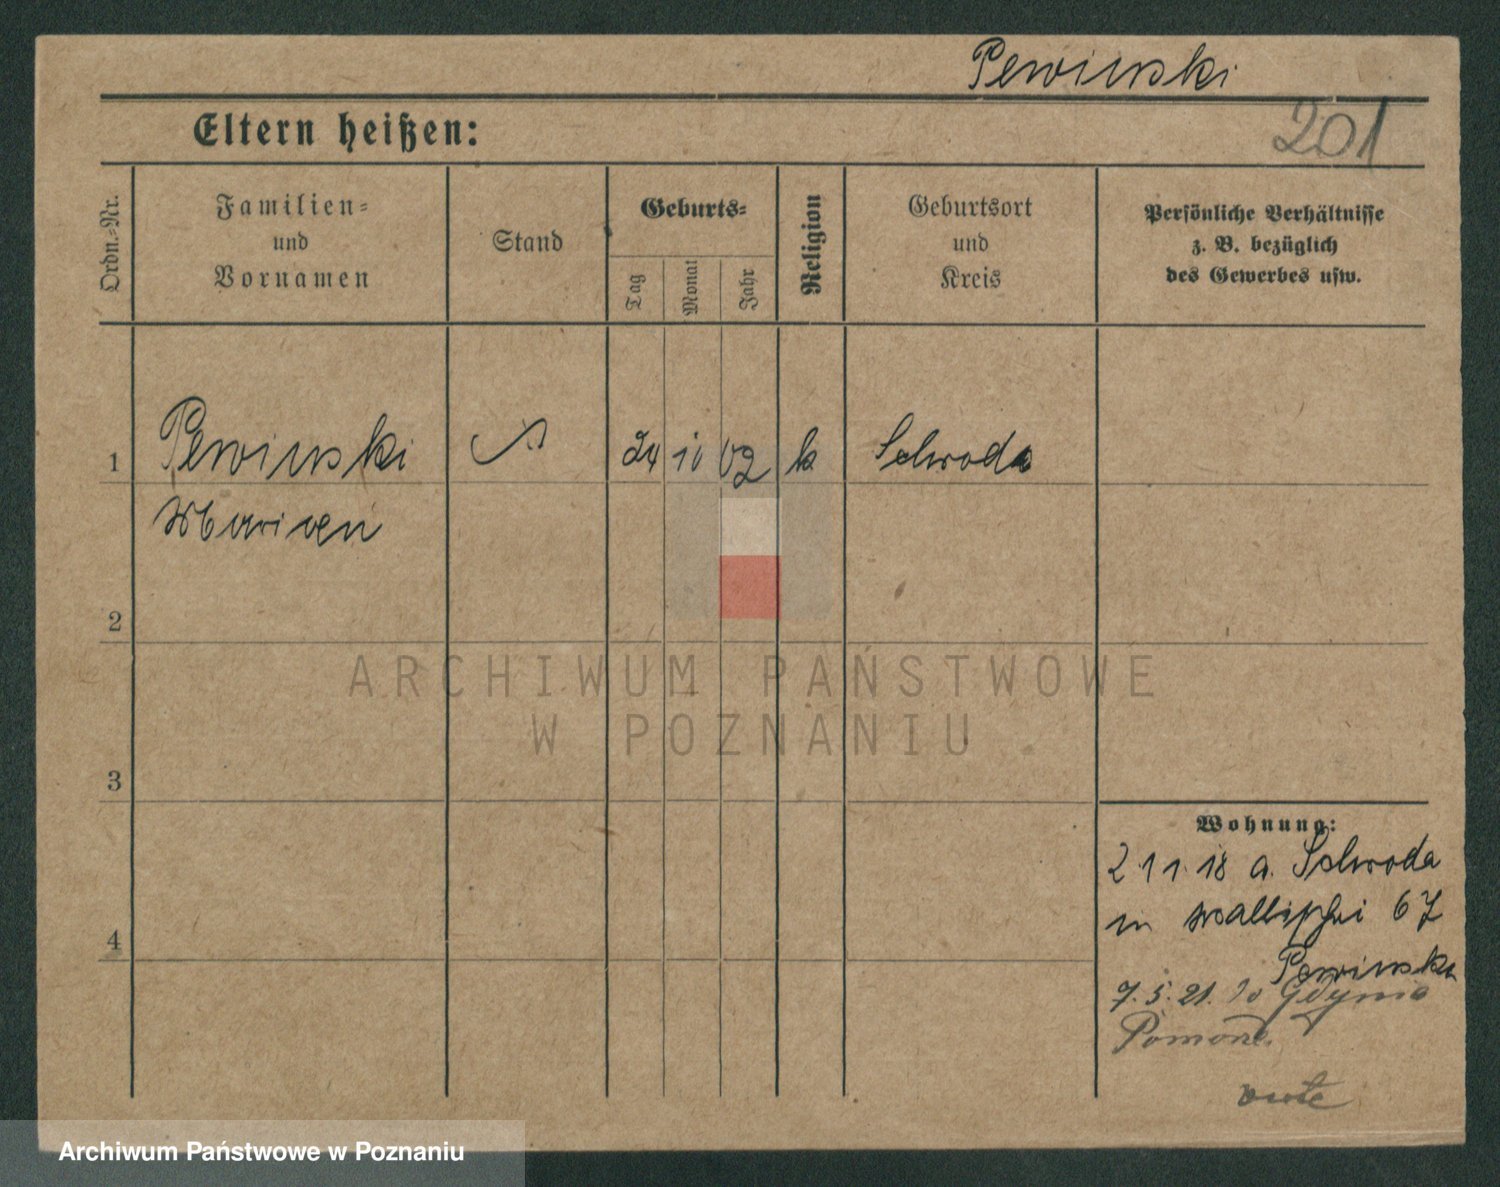 Pewinski
201
Eltern heißen:
Ordn.=Nr.
Familien=
und
Vornamen
Stand
Geburts=
Tag
Monat
Jahr
Religion
Geburtsort
und
Kreis
Persönliche Verhältnisse
z. B. bezüglich
des Gewerbes usw.
1 Pewinski 24 10 02 k Schroda
Maryan
2
3
4
ARCHIWUM PAŃSTWOWE
W POZNANIU
Wohnung:
2 11 18 a. Schroda
in Wallischei 67
Pewinski
7. 5. 21. Gdynia
Archiwum Państwowe w Poznaniu